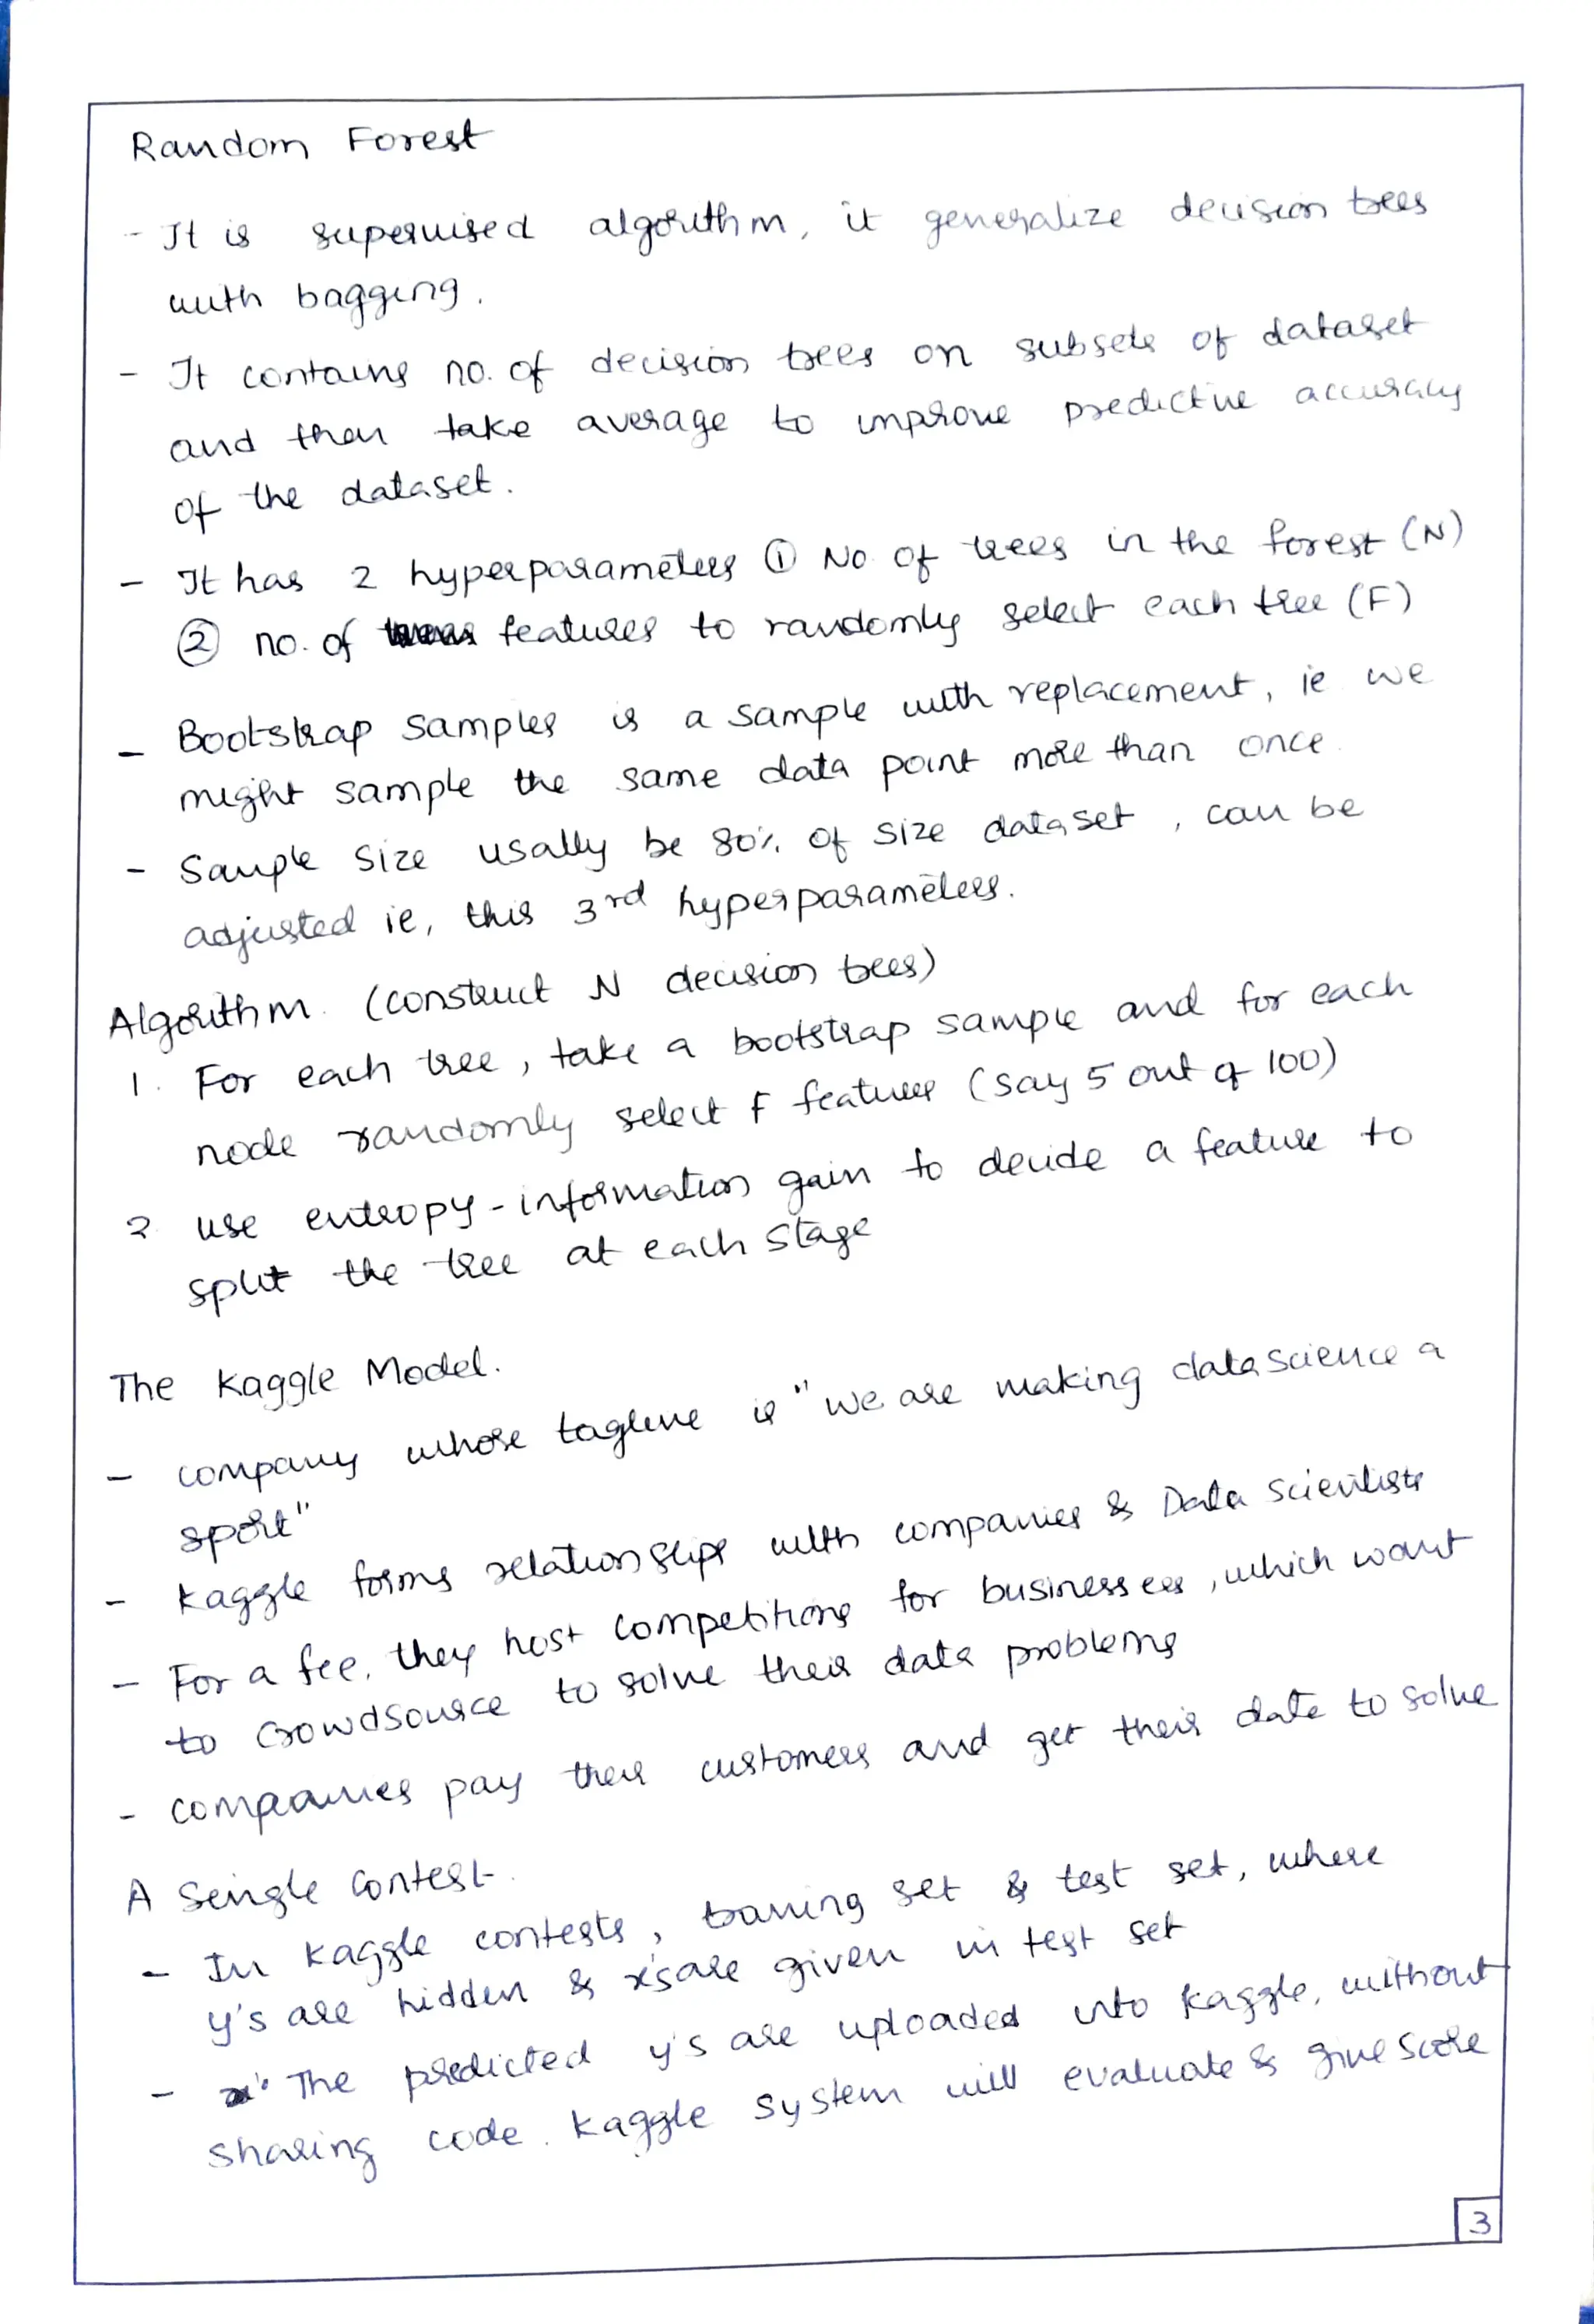 Random Forest
- It is supervised algorithm, it generalize decision trees
with bagging.
- It contains no. of decision trees on subsets of dataset
and then take average to improve predictive accuracy
of the dataset.
- It has 2 hyperparameters ① No of trees in the forest (N)
② no. of features to randomly select each tree (F)
- Bootstrap samples is a sample with replacement, ie we
might sample the same data point more than once.
- Sample size usally be 80% of size dataset, can be
adjusted ie, this 3rd hyperparameters.
Algorithm. (construct N decision trees)
1. For each tree, take a bootstrap sample and for each
node randomly select F features (say 5 out of 100)
2 use entropy - information gain to decide a feature to
split the tree at each stage
The Kaggle Model.
- company whose tagline is "we are making data science a
sport"
- Kaggle forms relationships with companies & Data Scientists
- For a fee, they host competitions for businesses, which want
to crowdsource to solve their data problems
- companies pay their customers and get their data to solve
A Single Contest.
- In Kaggle contests, training set & test set, where
y's are hidden & x's are given in test set
- The predicted y's are uploaded into Kaggle, without
sharing code. Kaggle system will evaluate & give score
3